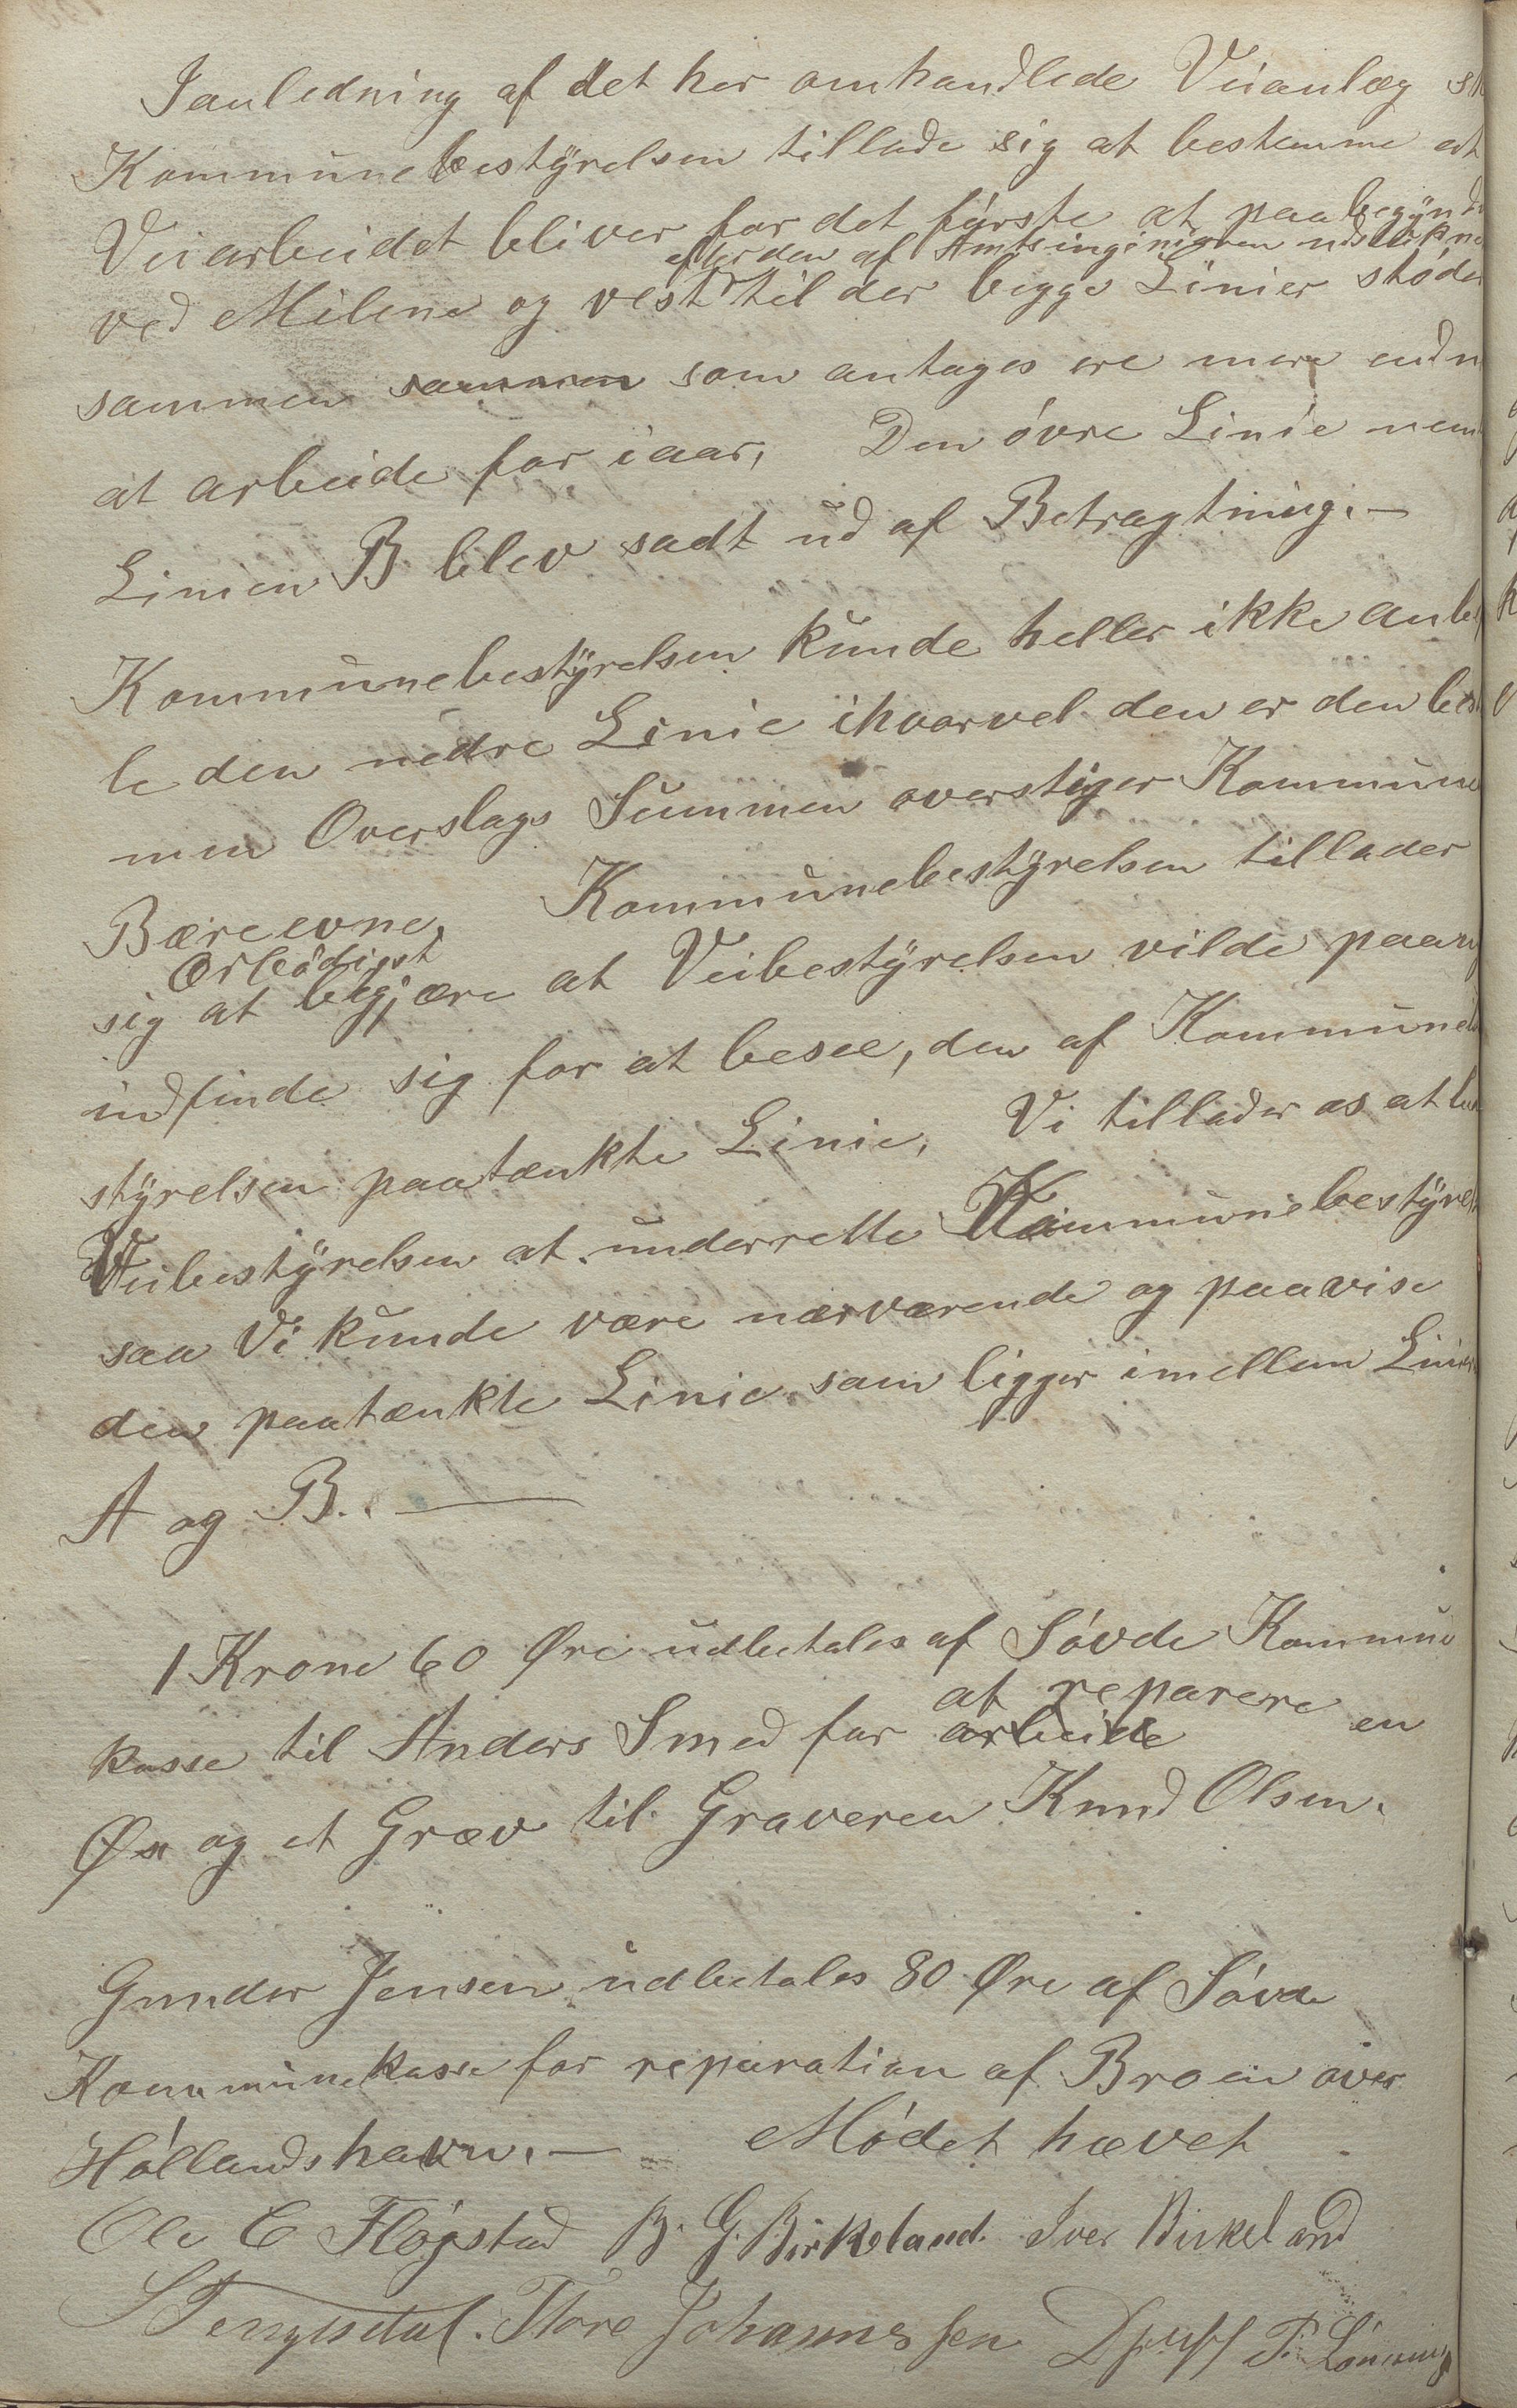 Ianledning af det her omhandlede Veianlæg
Kommunebestÿrelsen tillade sig at bestemme at
Veiarbeidet bliver for det første at paabegÿnde
efter den af Amtsingeniøren udstukne
ved Milene og vest til der begge Linier støder
sammen sammen som antages ere mere end n
at arbeide for iaar, Den øvre Linie nem
Linien B blev sadt ud af Betragtning. —
Kommunebestÿrelsen kunde heller ikke anbe
le den nedre Linie ihvorvel den er den bes
men Overslags Summen overstiger Kommune
Bæreevne, Kommunebestÿrelsen tillader
ærbødigst
sig at begjære at Veibestÿrelsen vilde paany
indfinde sig for at besee, den af Kommunebe
stÿrelsen paatænkte Linie, Vi tillader os at be
Veibestÿrelsen at underrette Kommunebestÿrels
saa Vi kunde være nærværende og paavise
den paatænkte Linie som ligger imellem Linien
A og B. —
1 Krone 60 Øre udbetales af Søvde Kommune
at reparere
kasse til Anders Smed for arbeide en
Øx og et Græv til Graveren Knud Olsen.
Gunder Jensen udbetales 80 Øre af Søvde
Kommunekasse for reparation af Broen over
Høllandshavn. — Mødet hævet
Ole C Fløgstad B. G. Birkeland. Iver Birkeland
Tore Johannessen P. Lønning